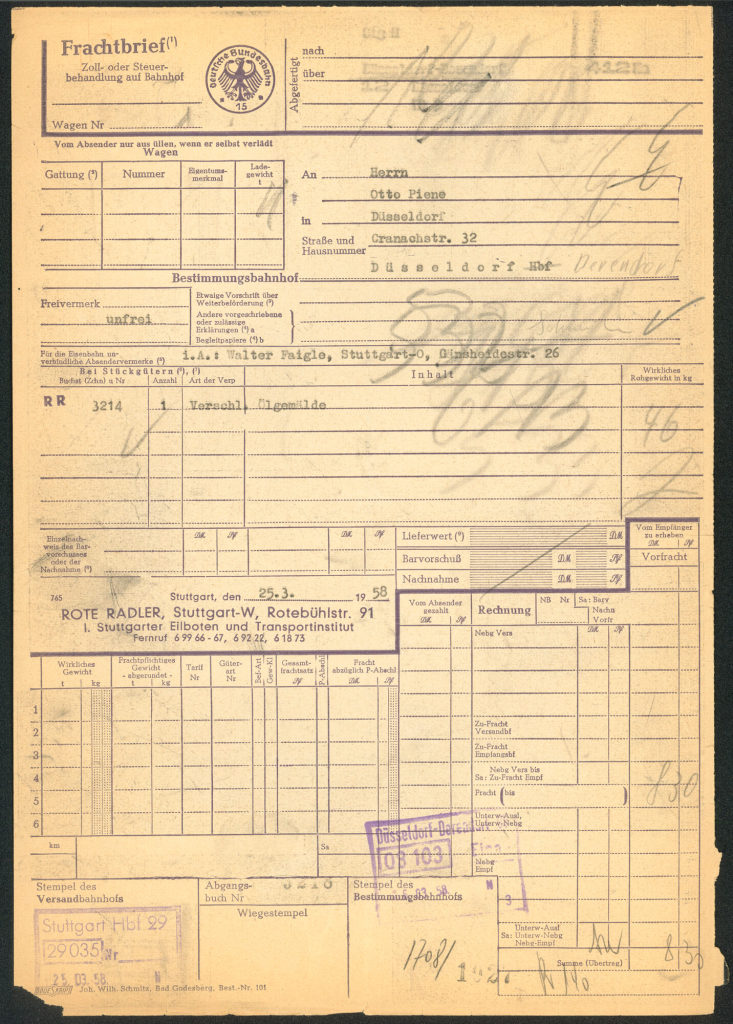 Frachtbrief(¹)
Zoll- oder Steuer-
behandlung auf Bahnhof
Deutsche Bundesbahn
15
Wagen Nr
Abgefertigt
nach
über
Vom Absender nur aus üllen, wenn er selbst verlädt
Wagen
Gattung (³) Nummer Eigentums-
merkmal Lade-
gewicht
t
An Herrn
Otto Piene
in Düsseldorf
Straße und
Hausnummer Cranachstr. 32
Bestimmungsbahnhof Düsseldorf Hbf Derendorf
Freivermerk
unfrei
Etwaige Vorschrift über
Weiterbeförderung (⁵)
Andere vorgeschriebene
oder zulässige
Erklärungen (⁴) a
Begleitpapiere (⁴) b
Für die Eisenbahn un-
verbindliche Absendervermerke (⁶) i.A.: Walter Faigle, Stuttgart-O, Gänsheidestr. 26
Bei Stückgütern (⁵), (⁷)
Buchst (Zchn) u Nr Anzahl Art der Verp Inhalt Wirkliches
Rohgewicht in kg
RR 3214 1 Verschl. Ölgemälde 46
Einzelnach-
weis des Bar-
vorschusses
oder der
Nachnahme (⁹)
DM Pf DM Pf
Lieferwert (⁹) DM
Barvorschuß DM Pf
Nachnahme DM Pf
Vom Empfänger
zu erheben
DM Pf
Vorfracht
765 Stuttgart, den 25.3. 1958
ROTE RADLER, Stuttgart-W, Rotebühlstr. 91
I. Stuttgarter Eilboten und Transportinstitut
Fernruf 6 99 66 - 67, 6 92 22, 6 18 73
Vom Absender
gezahlt
DM Pf
Rechnung
NB Nr Sa: Barv
Nachn
Vorfr
Nebg Vers DM Pf
Wirkliches
Gewicht
t kg
Frachtpflichtiges
Gewicht
- abgerundet -
t kg
Tarif
Nr
Güter-
art
Nr
Bef-Art
Gew-Kl
Gesamt-
frachtsatz
Pf
P-Abschl
Fracht
abzüglich P-Abschl
DM Pf
1
2
3
4
5
6
Zu-Fracht
Versandbf
Zu-Fracht
Empfangsbf
Nebg Vers bis
Sa: Zu-Fracht Empf
Fracht (bis ) 830
Unterw-Ausl,
Unterw-Nebg
Nebg
Empf
km
Sa
Düsseldorf-Derendorf
08 103
03.58 N
3
Stempel des
Versandbahnhofs
Stuttgart Hbf 29
29035 Nr
25.03.58 N
Abgangs-
buch Nr
Wiegestempel
Stempel des
Bestimmungsbahnhofs
Unterw-Ausl
Sa: Unterw-Nebg
Nebg-Empf
Summe (Übertrag) 8/30
1708/
Joh. Wilh. Schmitz, Bad Godesberg, Best.-Nr. 101